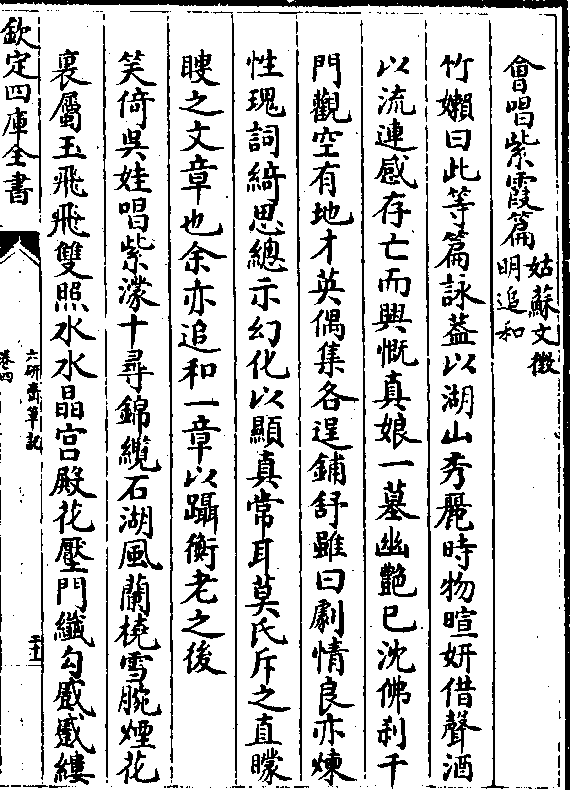 會唱紫霞篇姑蘇文徵明追和
竹嬾曰此等篇詠葢以湖山秀麗時物暄妍借聲酒
以流連感存亡而興慨真娘一墓幽艷已沈佛刹千
門觀空有地才英偶集各逞鋪舒雖曰劇情良亦煉
性瑰詞綺思總示幻化以顯真常耳莫氏斥之直矇
瞍之文章也余亦追和一章以躡衡老之後
笑倚吳娃唱紫濛十尋錦纜石湖風蘭橈雪腕煙花
裏屬玉飛飛雙照水水晶宫殿花壓門纖勾蹙蹙縷
欽定四庫全書
六研齋筆記
卷四